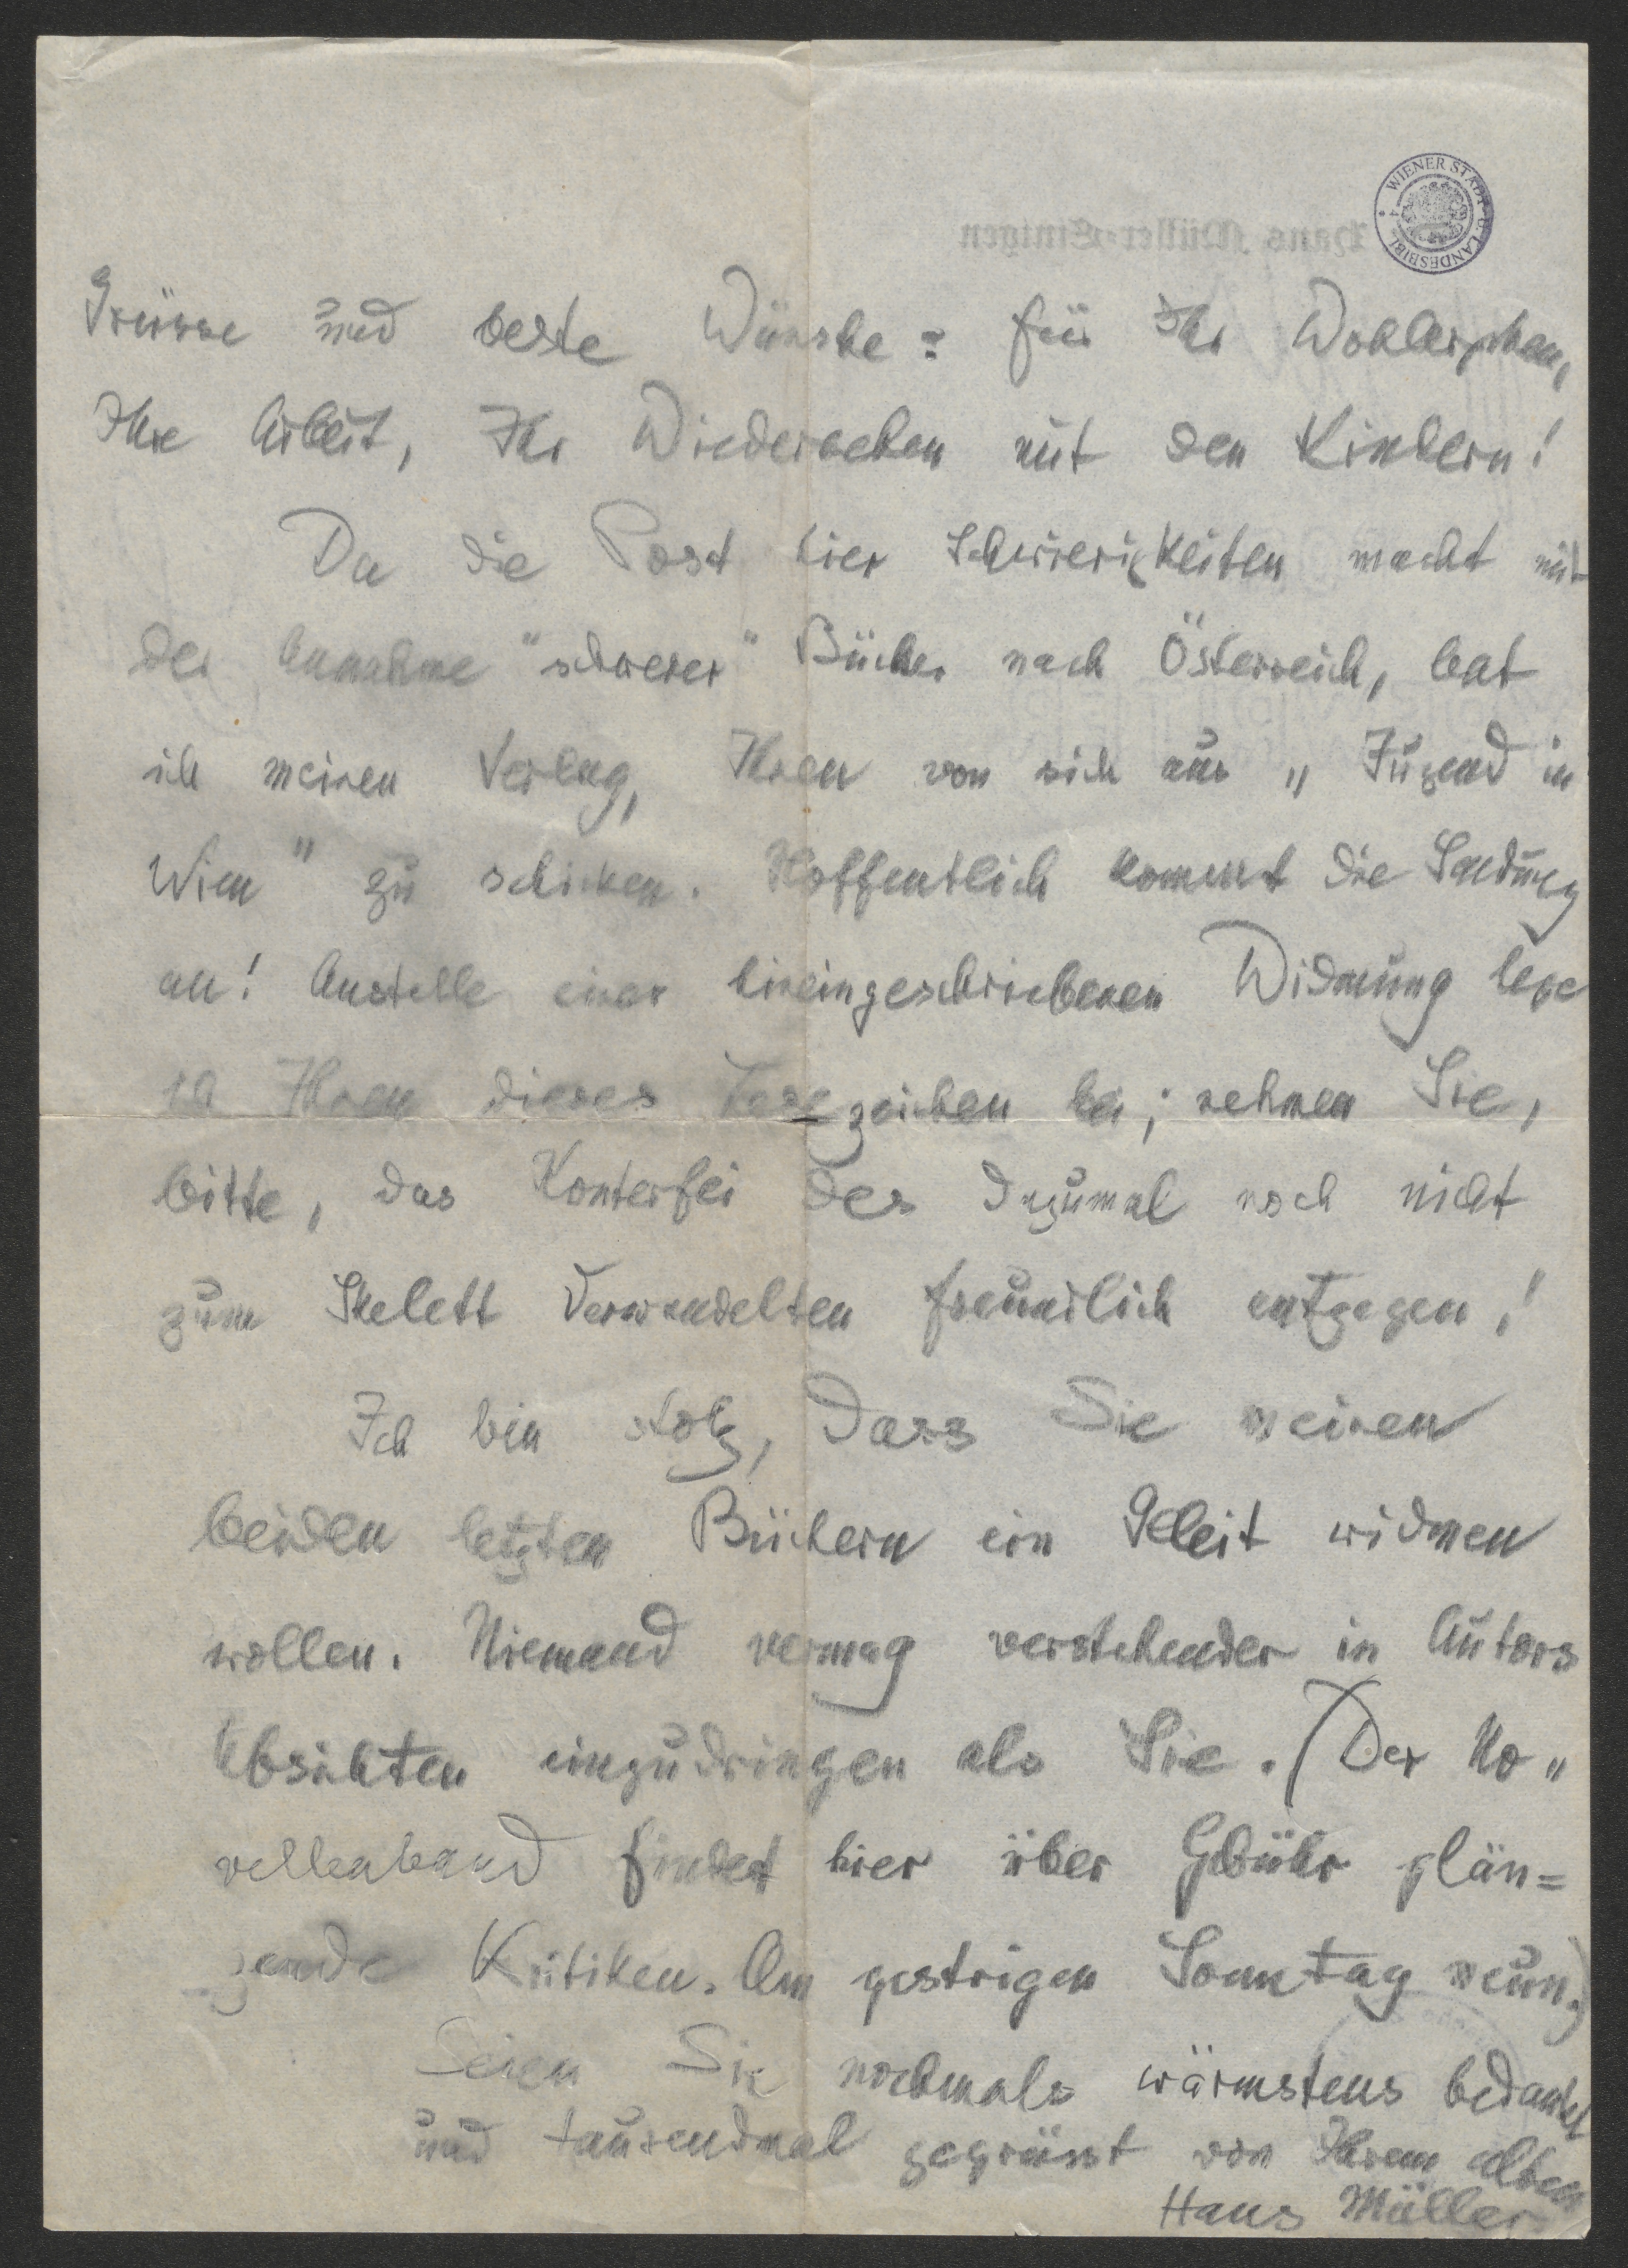 WIENER STADT-U. LANDESBIBL.
Hans Müller-Einigen
Grüsse und beste Wünsche: für Ihr Wohlergehen,
Ihre Arbeit, Ihr Wiedersehen mit den Kindern!
Da die Post hier Schwierigkeiten macht mit
der Annahme "schwerer" Bücher nach Österreich, bat
ich meinen Verlag, Ihnen von sich aus „Jugend in
Wien" zu schicken. Hoffentlich kommt die Sendung
an! Anstelle einer hineingeschriebenen Widmung lege
ich Ihnen dieses Lesezeichen bei; nehmen Sie,
bitte, das Konterfei des dazumal noch nicht
zum Skelett Verwandelten freundlich entgegen!
Ich bin stolz, dass Sie meinen
beiden letzten Büchern ein Geleit widmen
wollen. Niemand vermag verstehender in Autors
Absichten einzudringen als Sie. (Der No„
vellenband findet hier über Gebühr glän=
zende Kritiken. Am gestrigen Sonntag neun.)
Seien Sie nochmals wärmstens bedankt
und tausendmal gegrüsst von Ihrem alten
Hans Müller